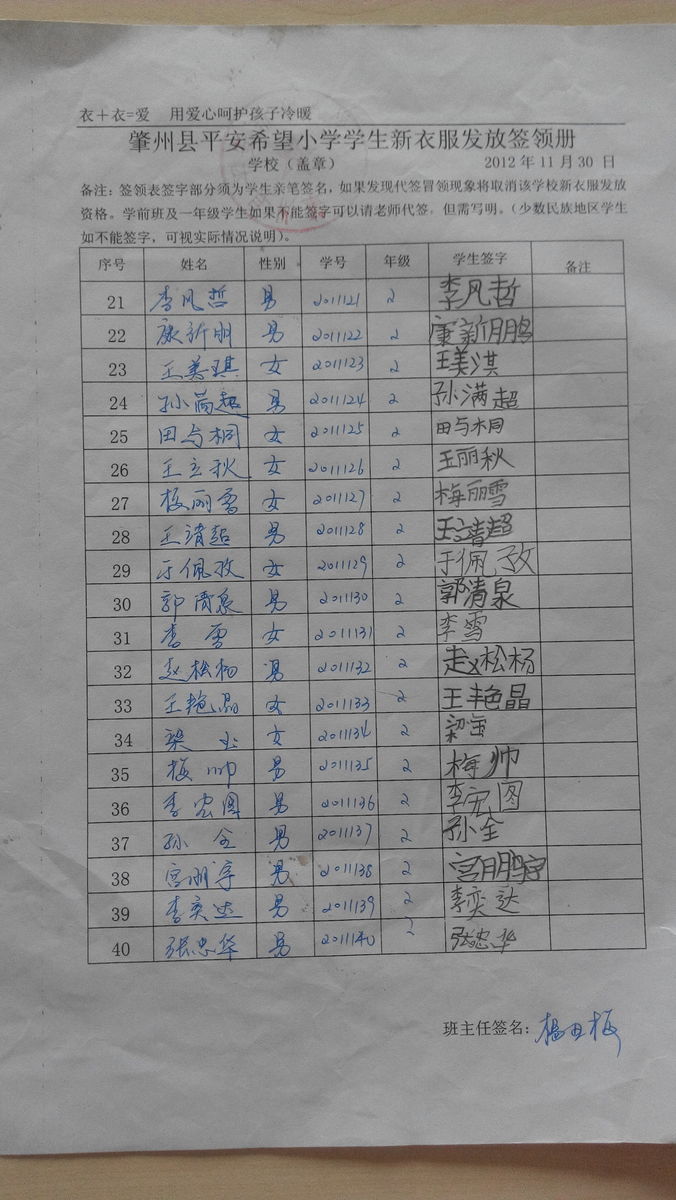 衣＋衣=爱 用爱心呵护孩子冷暖
肇州县平安希望小学学生新衣服发放签领册
学校（盖章） 2012 年 11 月 30 日
备注：签领表签字部分须为学生亲笔签名，如果发现代签冒领现象将取消该学校新衣服发放
资格。学前班及一年级学生如果不能签字可以请老师代签，但需写明。（少数民族地区学生
如不能签字，可视实际情况说明）。
序号 姓名 性别 学号 年级 学生签字 备注
21 李风哲 男 2011121 2 李风哲
22 康新朋 男 2011122 2 康新鹏
23 王美琪 女 2011123 2 王美淇
24 孙满超 男 2011124 2 孙满超
25 田与桐 女 2011125 2 田与桐
26 王立秋 女 2011126 2 王丽秋
27 梅丽雪 女 2011127 2 梅丽雪
28 王靖超 男 2011128 2 王靖超
29 于佩孜 女 2011129 2 于佩孜
30 郭清泉 男 2011130 2 郭清泉
31 李雪 女 2011131 2 李雪
32 赵松杨 男 2011132 2 赵松杨
33 王艳晶 女 2011133 2 王艳晶
34 梁玉 女 2011134 2 梁
35 梅帅 男 2011135 2 梅帅
36 李宏图 男 2011136 2 李宏图
37 孙全 男 2011137 2 孙全
38 宫朋宇 男 2011138 2 宫鹏宇
39 李奕达 男 2011139 2 李奕达
40 张忠华 男 2011140 2 张忠华
班主任签名：杨田梅